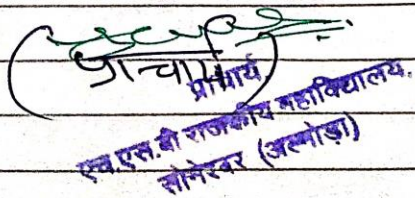 (प्राचार्य)
प्राचार्य,
एच.एस.बी राजकीय महाविद्यालय,
सोमेश्वर (अल्मोड़ा)